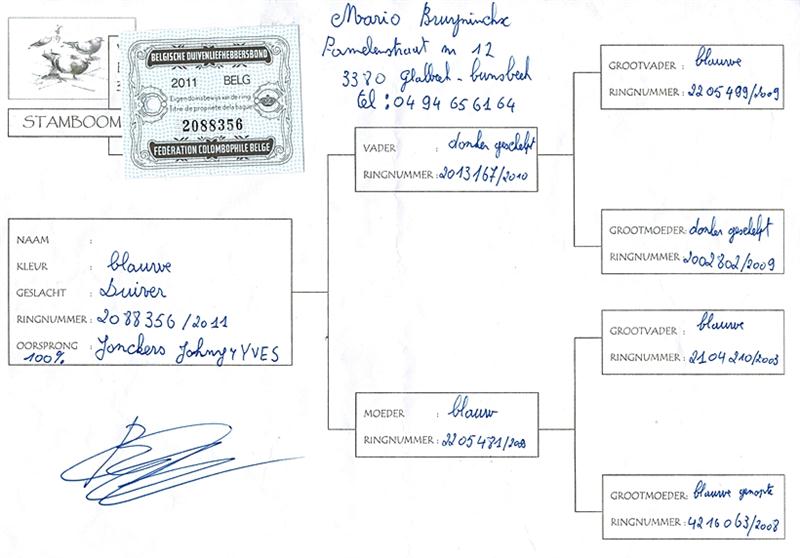 STAMBOOM
BELGISCHE DUIVENLIEFHEBBERSBOND
2011 BELG
Eigendomsbewijs van de ring
titre de propriété de la bague
2088356
FEDERATION COLOMBOPHILE BELGE
Mario Bruyninckx
Pamelenstraat nr 12
3380 Glabbeek - bunsbeek
tel : 04 94 65 61 64
NAAM :
KLEUR : blauwe
GESLACHT : Duiver
RINGNUMMER : 2088356/2011
OORSPRONG : Jonckers Johny + YVES
100%
VADER : donker geschelpt
RINGNUMMER : 2013167/2010
MOEDER : blauw
RINGNUMMER : 2205481/2009
GROOTVADER : blauwe
RINGNUMMER : 2205499/2009
GROOTMOEDER: donker geschelpt
RINGNUMMER: 2002802/2009
GROOTVADER : blauwe
RINGNUMMER: 2104210/2003
GROOTMOEDER: blauwe genopte
RINGNUMMER: 4216063/2008